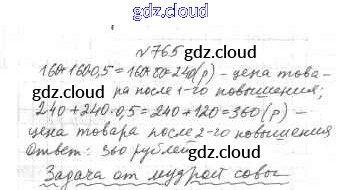 gdz.cloud
№765
gdz.cloud gdz.cloud
160+160·0,5=160+80=240(р) - цена това-
ра после 1-го повышения;
gdz.cloud gdz.cloud
240+240·0,5=240+120=360(р) -
цена товара после 2-го повышения
Ответ: 360 рублей gdz.cloud
Задача от мудрой совы
gdz.cloud